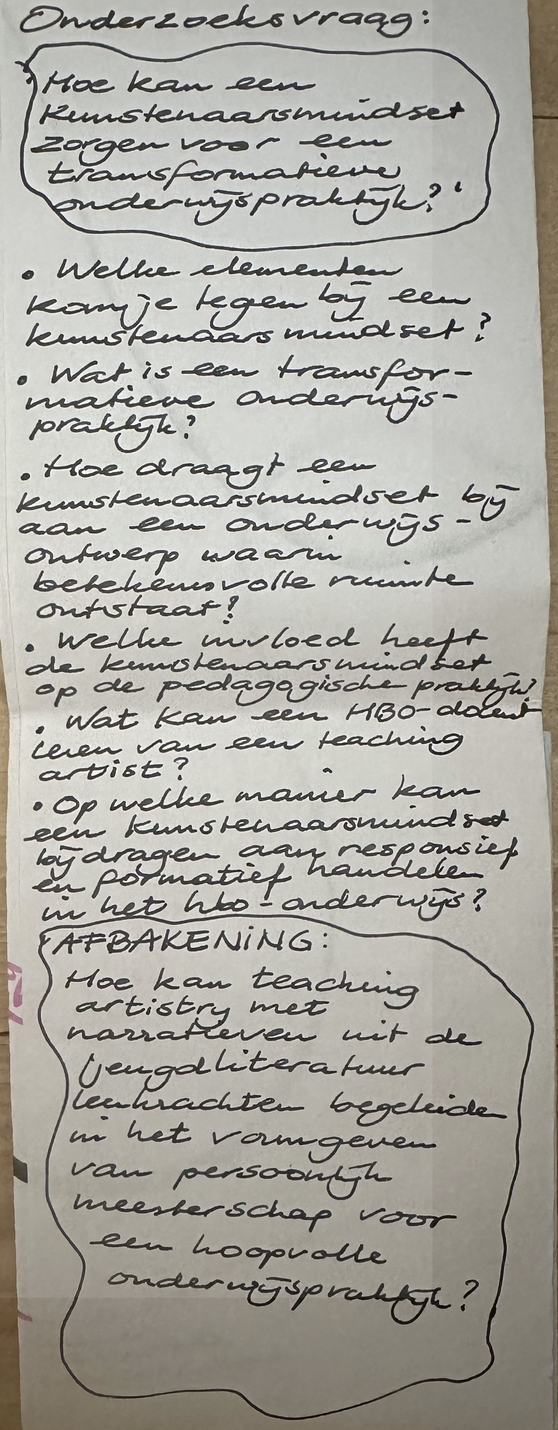 Onderzoeksvraag:
'Hoe kan een
kunstenaarsmindset
zorgen voor een
transformatieve
onderwijspraktijk?'
• Welke elementen
kom je tegen bij een
kunstenaarsmindset?
• Wat is een transfor-
matieve onderwijs-
praktijk?
• Hoe draagt een
kunstenaarsmindset bij
aan een onderwijs-
ontwerp waarin
betekenisvolle ruimte
ontstaat?
• Welke invloed heeft
de kunstenaarsmindset
op de pedagogische praktijk?
• Wat kan een HBO-docent
leren van een teaching
artist?
• Op welke manier kan
een kunstenaarsmindset
bijdragen aan responsief
en formatief handelen
in het hbo-onderwijs?
AFBAKENING:
Hoe kan teaching
artistry met
narratieven uit de
jeugdliteratuur
leerkrachten begeleiden
in het vormgeven
van persoonlijk
meesterschap voor
een hoopvolle
onderwijspraktijk?